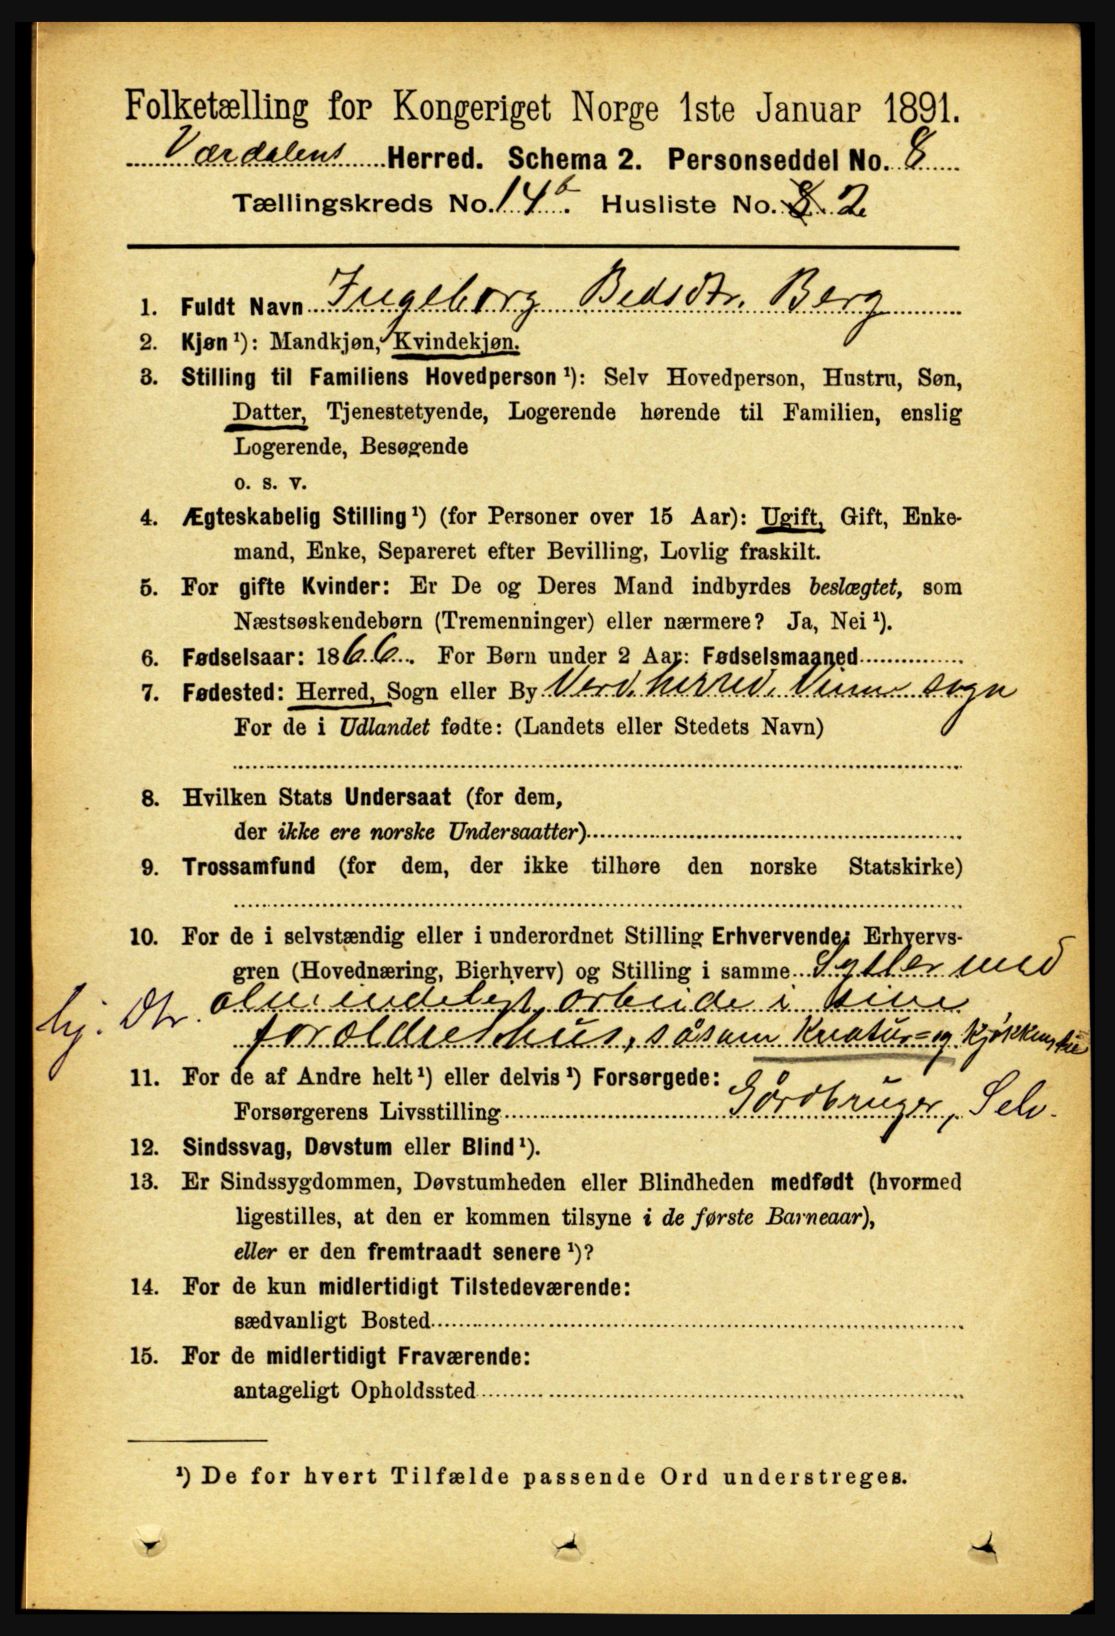 Folketælling for Kongeriget Norge 1ste Januar 1891.
Værdalens Herred. Schema 2. Personseddel No. 8
Tællingskreds No. 14 b. Husliste No. 8. 2.
1. Fuldt Navn Ingeborg Berg
2. Kjøn ¹): Mandkjøn, Kvindekjøn.
3. Stilling til Familiens Hovedperson ¹): Selv Hovedperson, Hustru, Søn,
Datter, Tjenestetyende, Logerende hørende til Familien, enslig
Logerende, Besøgende
o. s. v.
4. Ægteskabelig Stilling ¹) (for Personer over 15 Aar): Ugift, Gift, Enke-
mand, Enke, Separeret efter Bevilling, Lovlig fraskilt.
5. For gifte Kvinder: Er De og Deres Mand indbyrdes beslægtet, som
Næstsøskendebørn (Tremenninger) eller nærmere? Ja, Nei ¹).
6. Fødselsaar: 1866. For Børn under 2 Aar: Fødselsmaaned
7. Fødested: Herred, Sogn eller By Verd. herred, Vinne sogn
For de i Udlandet fødte: (Landets eller Stedets Navn)
8. Hvilken Stats Undersaat (for dem,
der ikke ere norske Undersaatter)
9. Trossamfund (for dem, der ikke tilhøre den norske Statskirke)
10. For de i selvstændig eller i underordnet Stilling Erhvervende: Erhvervs-
gren (Hovednæring, Bierhverv) og Stilling i samme Sysler med
hj. Dtr. almindeligt arbeide i sine
forældres hus, såsom Kreatur= og kjøkkenstel
11. For de af Andre helt ¹) eller delvis ¹) Forsørgede:
Forsørgerens Livsstilling Gårdbruger, Selv.
12. Sindssvag, Døvstum eller Blind ¹).
13. Er Sindssygdommen, Døvstumheden eller Blindheden medfødt (hvormed
ligestilles, at den er kommen tilsyne i de første Barneaar),
eller er den fremtraadt senere ¹)?
14. For de kun midlertidigt Tilstedeværende:
sædvanligt Bosted
15. For de midlertidigt Fraværende:
antageligt Opholdssted
¹) De for hvert Tilfælde passende Ord understreges.